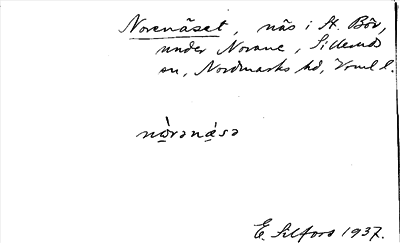 Norenäset, näs i St. Bör,
under Norane, Silleruds
sn, Nordmarks hd, Vrml l.
nò̱rəná̱sə
E. Silfors 1937.